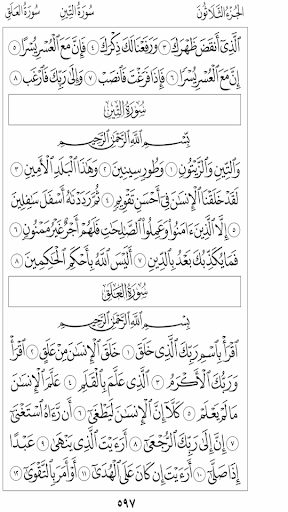 الجُزءُ الثَّلَاثُونَ سُورَةُ التِّينِ سُورَةُ العَلَقِ
ٱلَّذِيٓ أَنقَضَ ظَهْرَكَ ٣ وَرَفَعْنَا لَكَ ذِكْرَكَ ٤ فَإِنَّ مَعَ ٱلْعُسْرِ يُسْرًا ٥
إِنَّ مَعَ ٱلْعُسْرِ يُسْرًا ٦ فَإِذَا فَرَغْتَ فَٱنصَبْ ٧ وَإِلَىٰ رَبِّكَ فَٱرْغَب ٨
سُورَةُ التِّينِ
بِسْمِ ٱللَّهِ ٱلرَّحْمَٰنِ ٱلرَّحِيمِ
وَٱلتِّينِ وَٱلزَّيْتُونِ ١ وَطُورِ سِينِينَ ٢ وَهَٰذَا ٱلْبَلَدِ ٱلْأَمِينِ ٣
لَقَدْ خَلَقْنَا ٱلْإِنسَٰنَ فِيٓ أَحْسَنِ تَقْوِيمٍ ٤ ثُمَّ رَدَدْنَٰهُ أَسْفَلَ سَٰفِلِينَ
٥ إِلَّا ٱلَّذِينَ ءَامَنُوا۟ وَعَمِلُوا۟ ٱلصَّٰلِحَٰتِ فَلَهُمْ أَجْرٌ غَيْرُ مَمْنُونٍ ٦
فَمَا يُكَذِّبُكَ بَعْدُ بِٱلدِّينِ ٧ أَلَيْسَ ٱللَّهُ بِأَحْكَمِ ٱلْحَٰكِمِينَ ٨
سُورَةُ العَلَقِ
بِسْمِ ٱللَّهِ ٱلرَّحْمَٰنِ ٱلرَّحِيمِ
ٱقْرَأْ بِٱسْمِ رَبِّكَ ٱلَّذِى خَلَقَ ١ خَلَقَ ٱلْإِنسَٰنَ مِنْ عَلَقٍ ٢ ٱقْرَأْ
وَرَبُّكَ ٱلْأَكْرَمُ ٣ ٱلَّذِى عَلَّمَ بِٱلْقَلَمِ ٤ عَلَّمَ ٱلْإِنسَٰنَ
مَا لَمْ يَعْلَمْ ٥ كَلَّآ إِنَّ ٱلْإِنسَٰنَ لَيَطْغَىٰٓ ٦ أَن رَّءَاهُ ٱسْتَغْنَىٰٓ
٧ إِنَّ إِلَىٰ رَبِّكَ ٱلرُّجْعَىٰٓ ٨ أَرَءَيْتَ ٱلَّذِى يَنْهَىٰ ٩ عَبْدًا
إِذَا صَلَّىٰٓ ١٠ أَرَءَيْتَ إِن كَانَ عَلَى ٱلْهُدَىٰٓ ١١ أَوْ أَمَرَ بِٱلتَّقْوَىٰٓ ١٢
٥٩٧